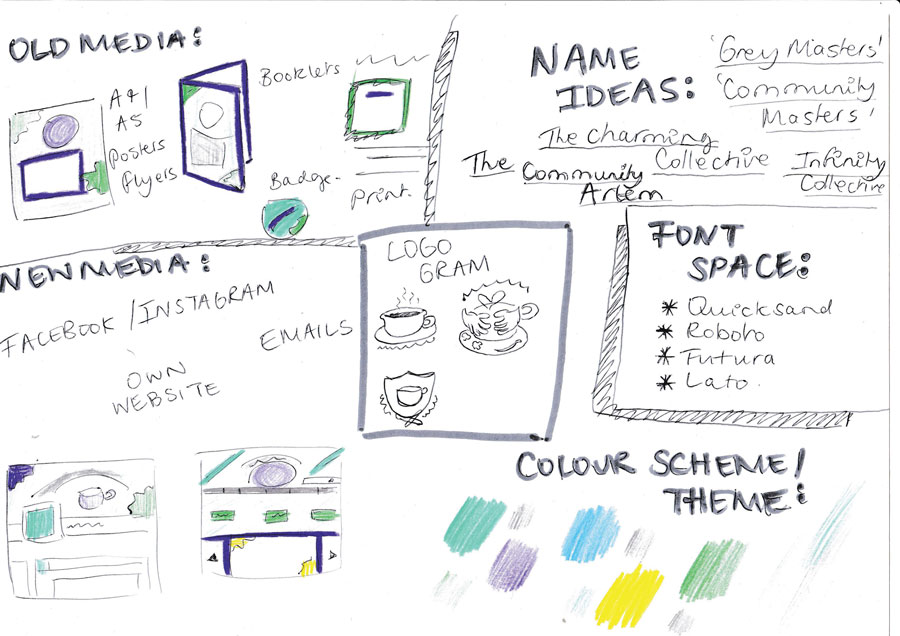 OLD MEDIA:
A4/
A5
Posters
flyers
Booklets
Badge.
Print.
NAME
IDEAS:
'Grey Masters'
'Community
Masters'
The Charming
Collective
The Community
Artem
Infinity
Collective
NEW MEDIA:
FACEBOOK / INSTAGRAM
EMAILS
OWN
WEBSITE
LOGO
GRAM
FONT
SPACE:
* Quicksand
* Roboto
* Futura
* Lato.
COLOUR SCHEME/
THEME: